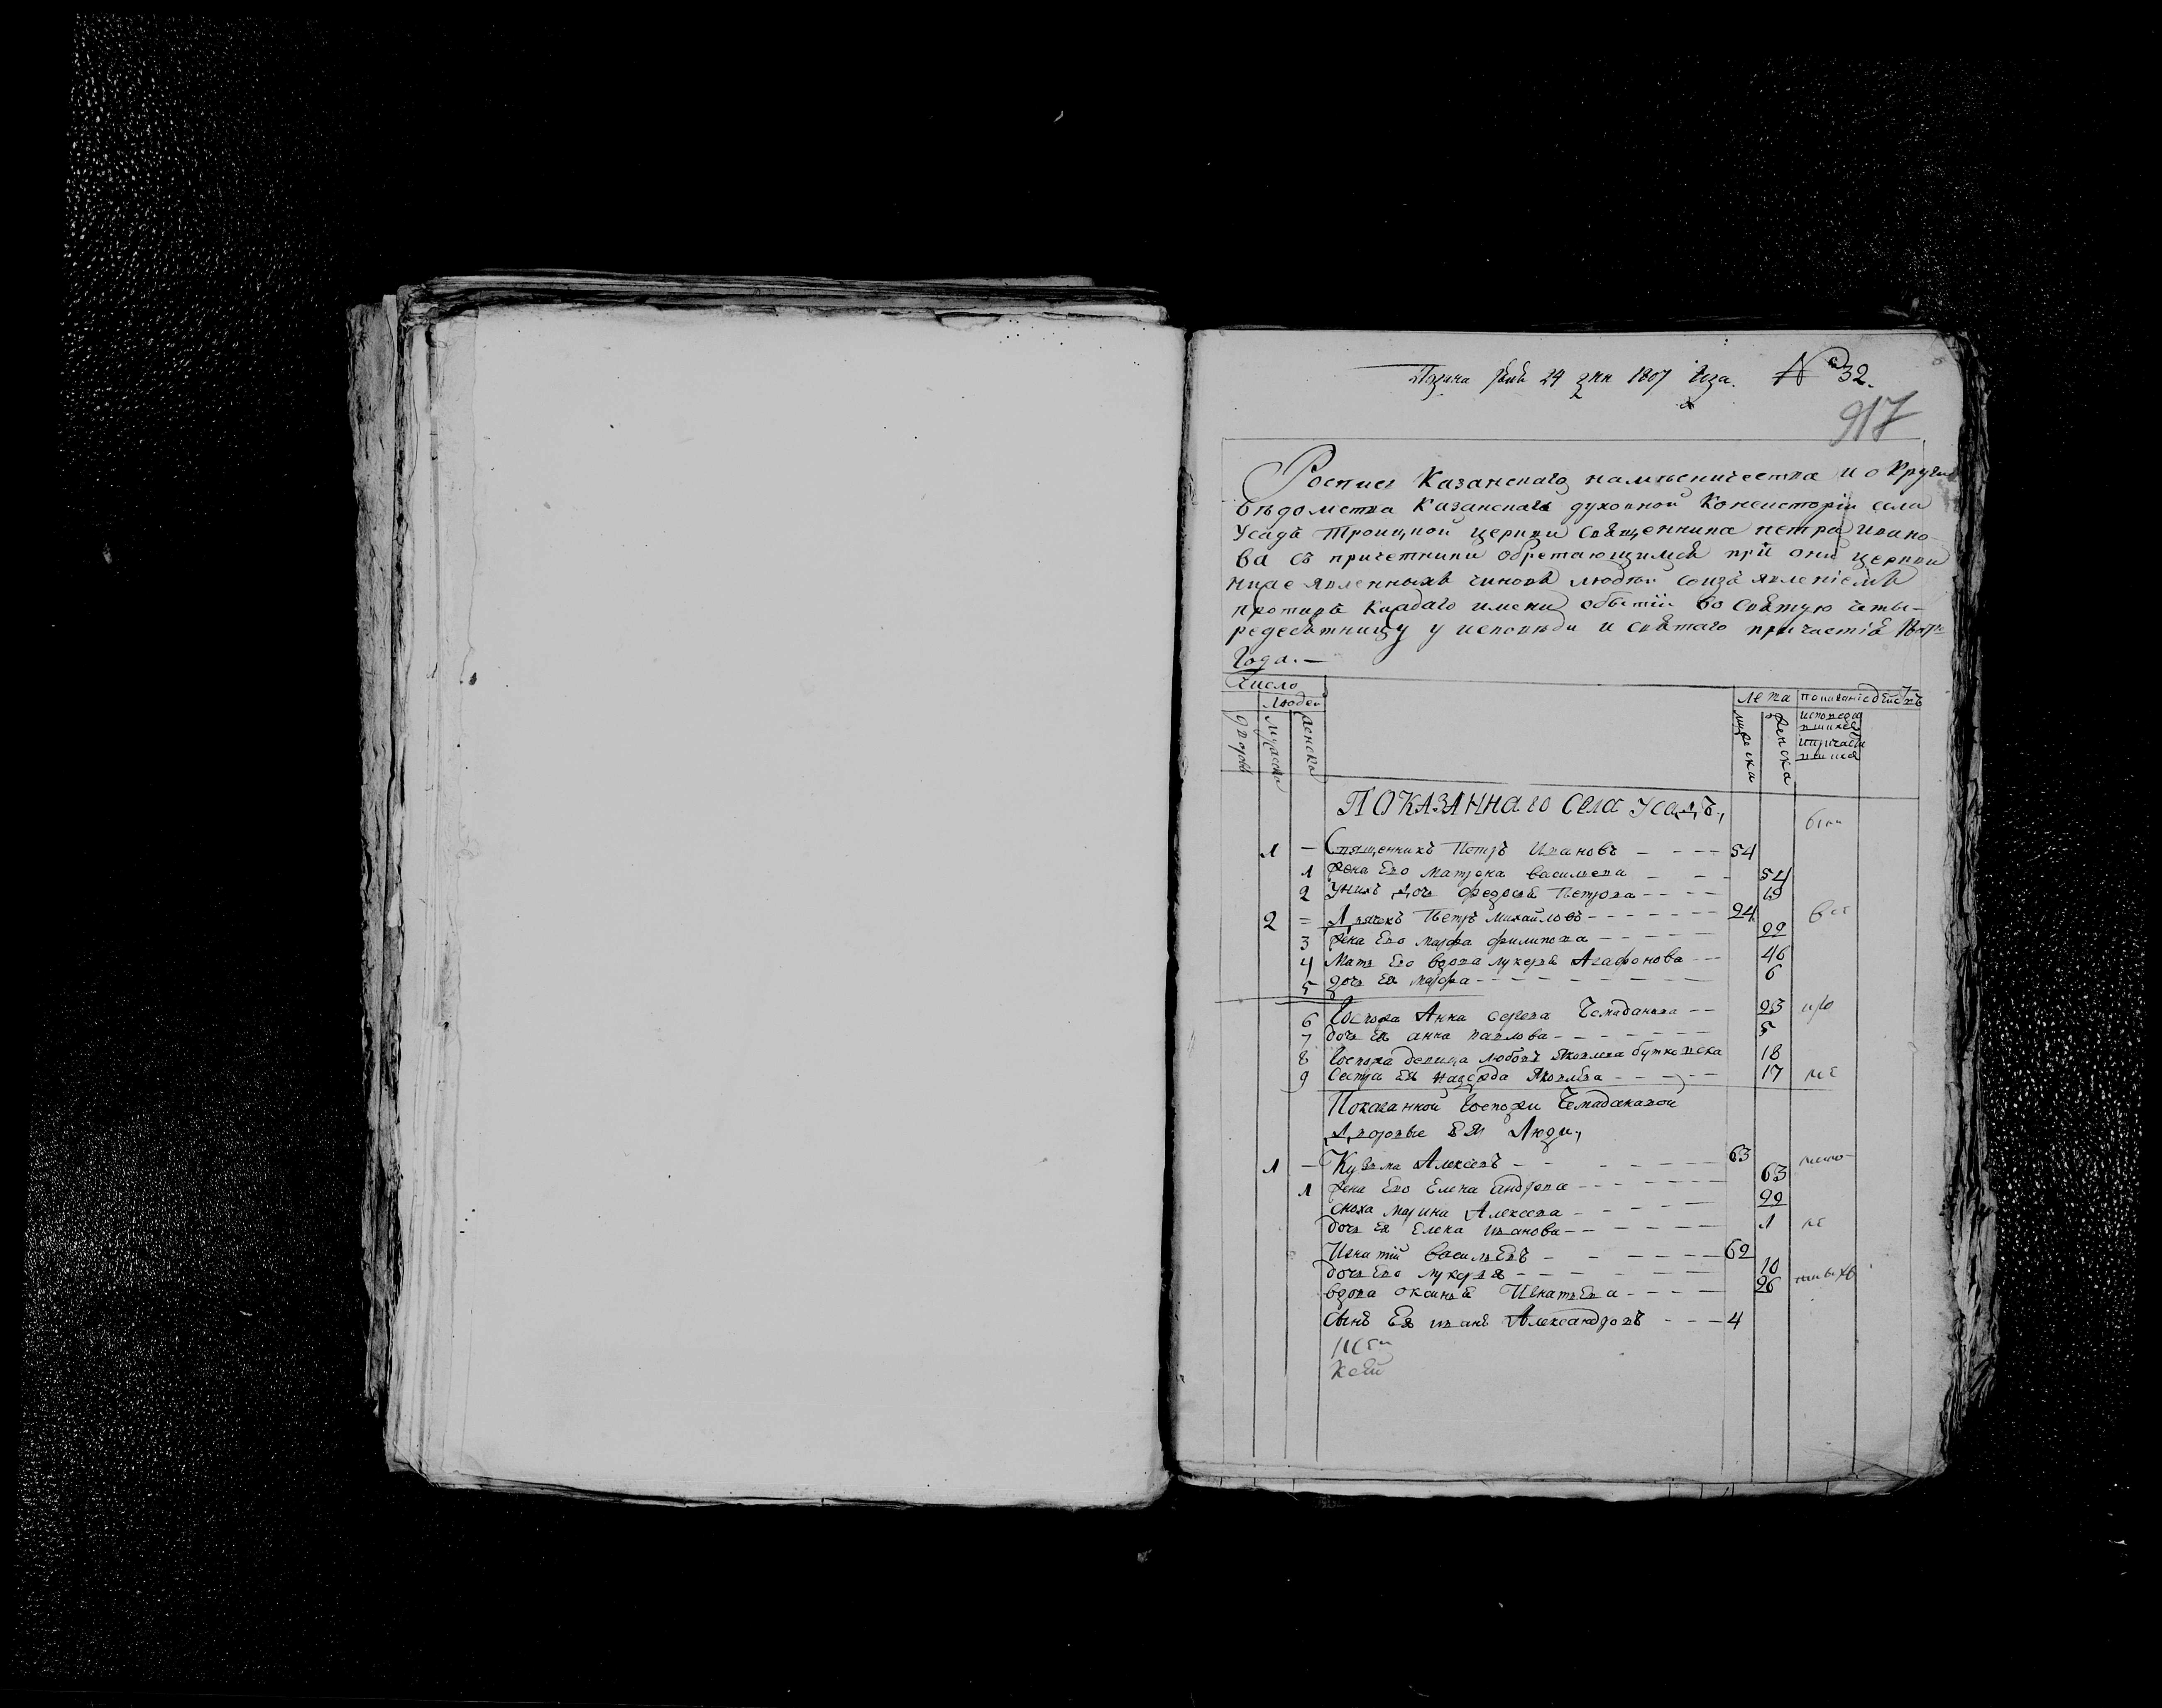 24 дня 1807 Года. № 32.
917
Роспись Казанскаго наместничества и округи
ведомства Казанскаго духовной Консисторіи села
Усадъ Троицкой церкви Священника петра ивано-
ва съ причетники обретающимся при оной церкви
ниже явленныхъ чиновъ людеи соизъявленіемъ
противъ каждаго имени о бытіи во святую четы-
редесятницу у исповеди и святаго причастія 1807го
Года.—
Число
Людей
Лета
дворовъ
мужеска
женска
мужеска
женска
ПОКАЗАННАГО Села УСАДЪ,
1 — Священникъ Петръ Ивановъ — 54
1 Жена Ево Матрена Васильева — 54
2 Унихъ дочь Федосья Петрова
2 = Дьячекъ Петръ Михайловъ — 24 все
3 Жена Ево Марфа Филипова — 22
4 Мать Ево Вдова Лукерья Агафонова — 46
5 дочь Ея Марфа — 6
6 Госпожа Анна Чемаданова — 23
7 дочь Ея анна павлова — 5
8 Госпожа девица любовь Яковлева бутковска 18
9 Сестра Ея Надежда Яковлева — 17
Показанной Госпожи Чемадановой
Дворовые Ея Люди,
1 — Кузма Алексеевъ — 63
1 Жена Ево Елена андрева — 63
сноха Марина Алексеева — 22
дочь Ея Елена Иванова — 1
Игнатій Васильевъ — 62
дочь Ево Лукерья — 10
вдова оксинья Игнатьева — 26
Сынъ Ея иванъ Александровъ — 4